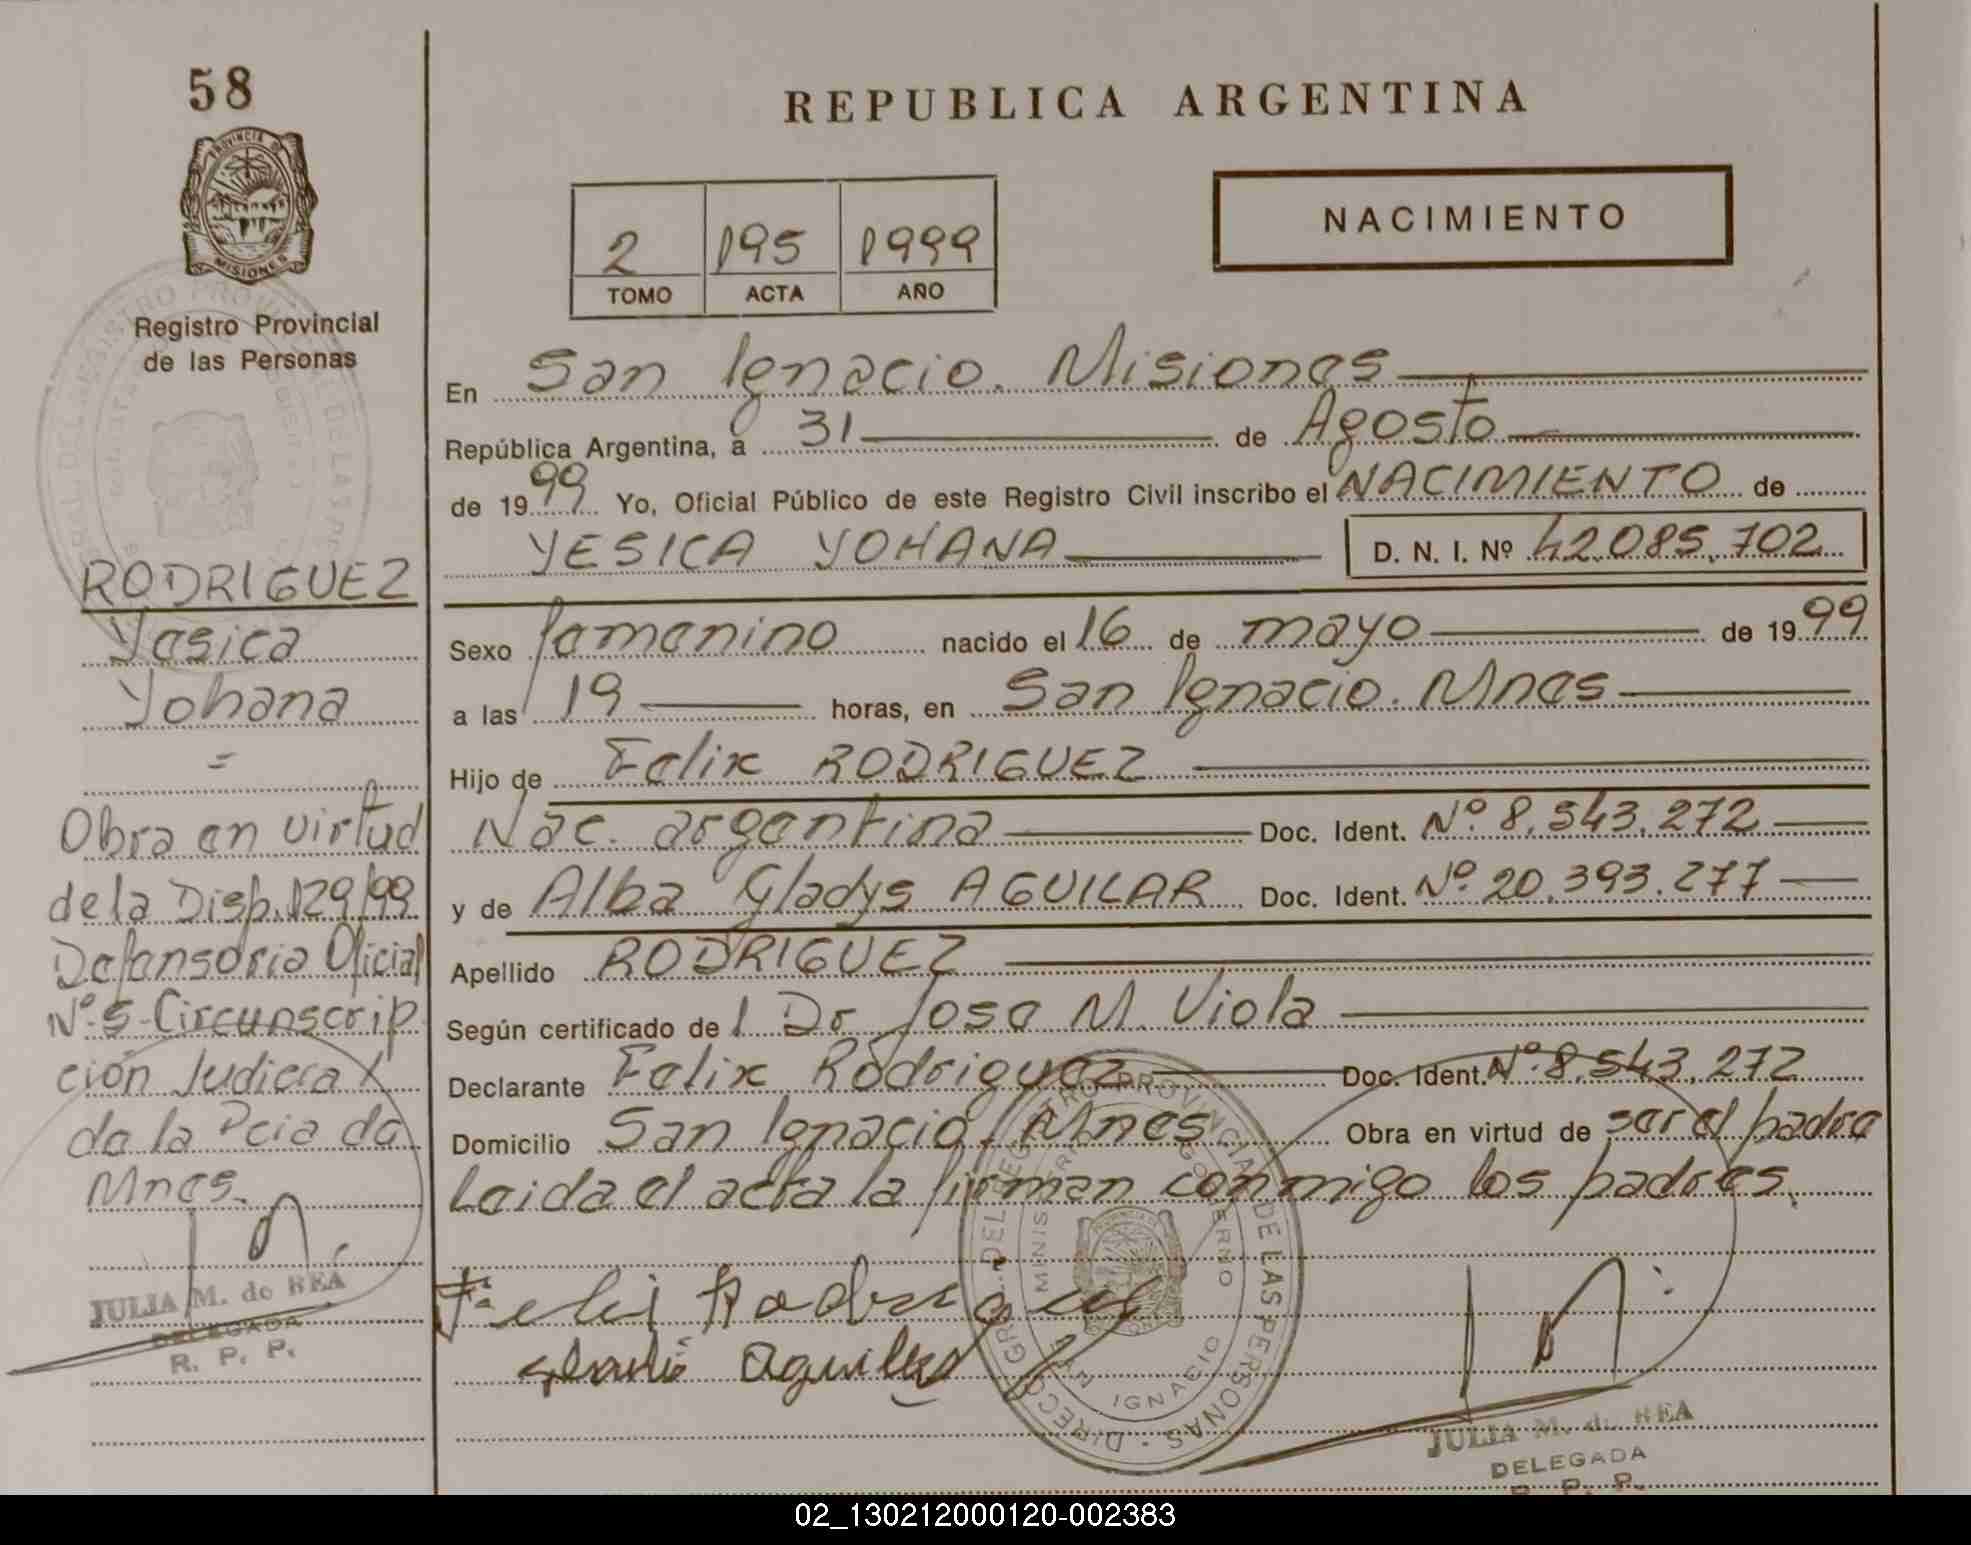 58
PROVINCIA DE
MISIONES
Registro Provincial
de las Personas
RODRIGUEZ
Yesica
Yohana
=
Obra en virtud
de la Disp. 129/99
Defensoria Oficial
Nº. 5 - Circunscrip
ción Judicial
de la Pcia de
Mnes.
JULIA M. de REA
DELEGADA
R. P. P.
REPUBLICA ARGENTINA
2 195 1999
TOMO ACTA AÑO
NACIMIENTO
En San Ignacio. Misiones
República Argentina, a 31 de Agosto
de 1999 Yo, Oficial Público de este Registro Civil inscribo el NACIMIENTO de
YESICA YOHANA D. N. I. Nº 42.085.702
Sexo femenino nacido el 16 de mayo de 1999
a las 19 horas, en San Ignacio. Mnes
Hijo de Felix RODRIGUEZ
Nac. argentina Doc. Ident. Nº. 8.543.272
y de Alba Gladys AGUILAR Doc. Ident. Nº. 20.393.277
Apellido RODRIGUEZ
Según certificado del Dr Jose M. Viola
Declarante Felix Rodriguez Doc. Ident. Nº. 8.543.272
Domicilio San Ignacio, Mnes Obra en virtud de ser el padre
Leida el acta la firman conmigo los padres.
DIRECC GRAL. DEL REGISTRO PROVINCIAL DE LAS PERSONAS
IGNACIO
JULIA M. de REA
DELEGADA
R. P. P.
02_130212000120-002383